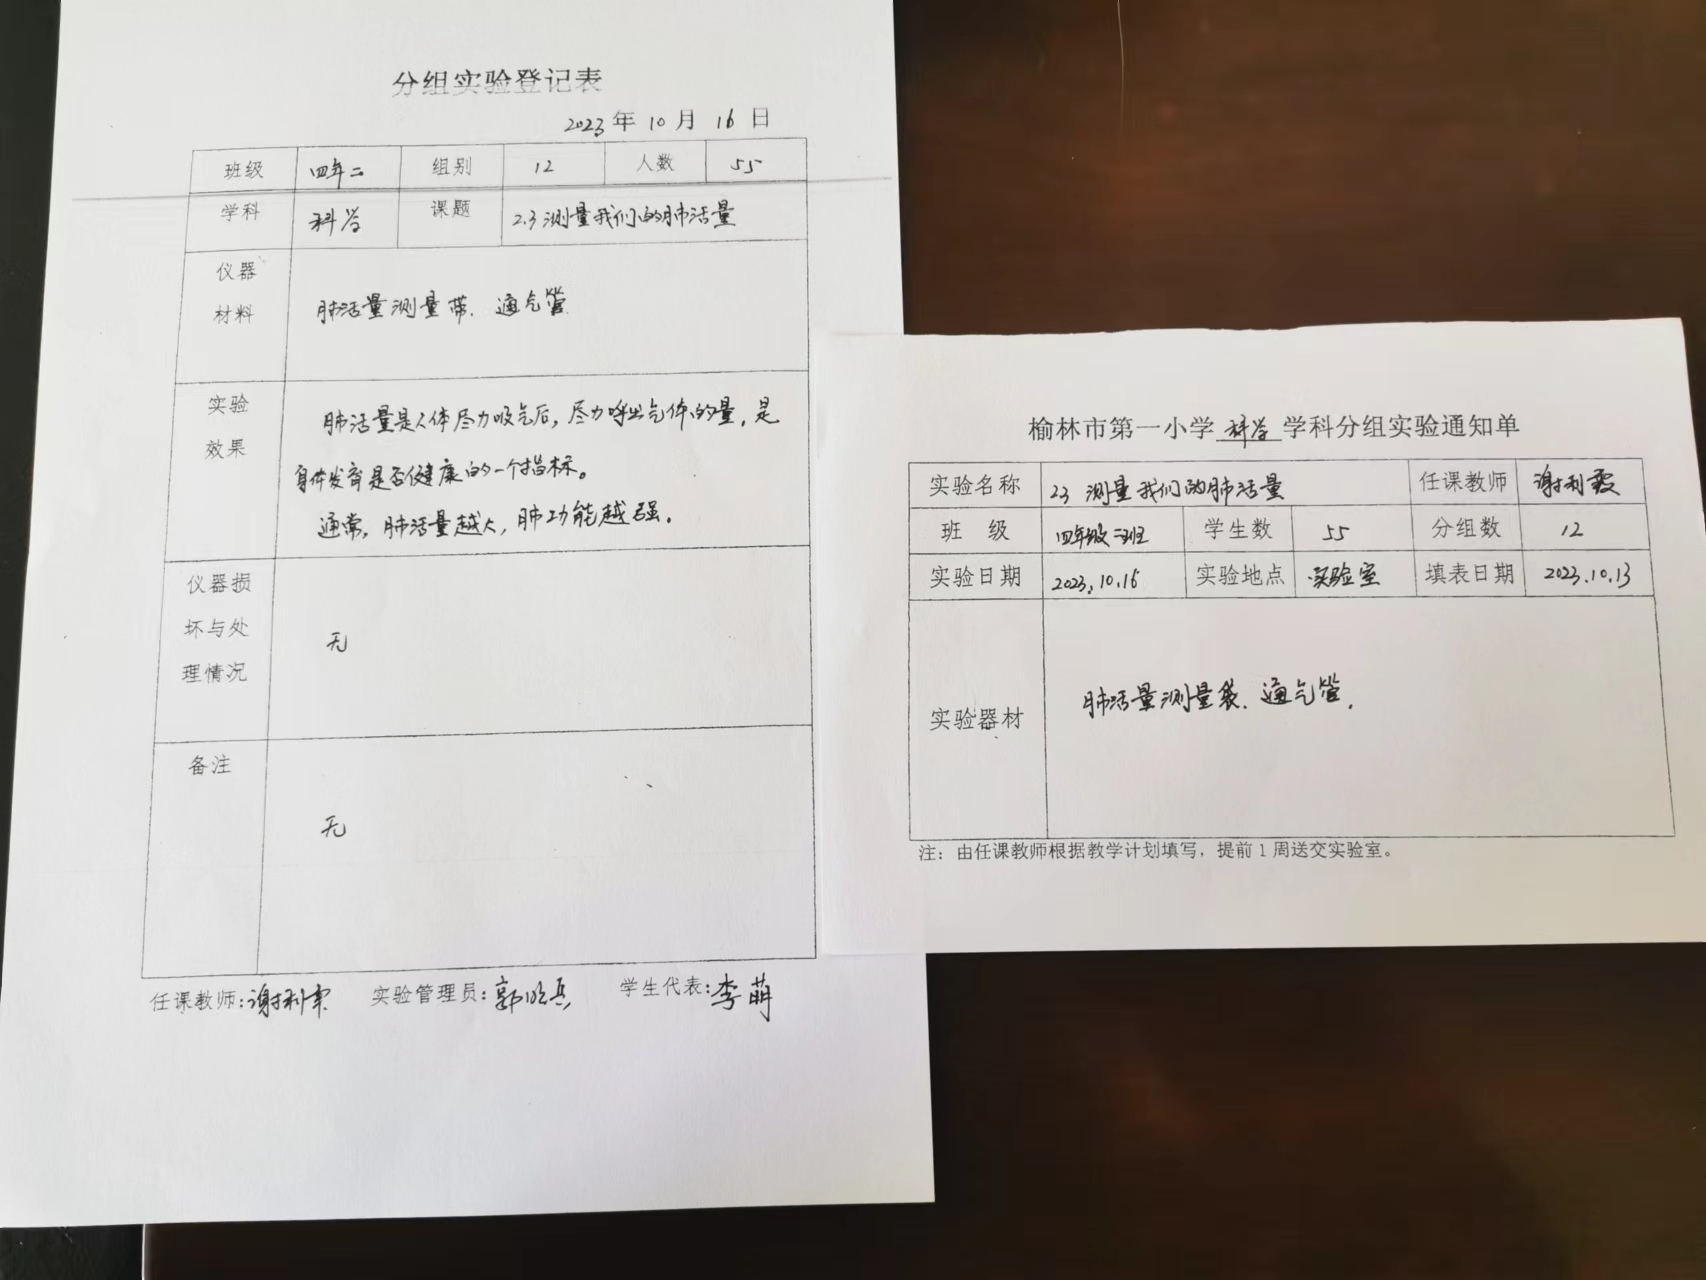 分组实验登记表
2023年10月16日
班级 四年二 组别 12 人数 55
学科 科学 课题 2.3测量我们的肺活量
仪器
材料
肺活量测量带、通气管
实验
效果
肺活量是人体尽力吸气后，尽力呼出气体的量，是
身体发育是否健康的一个指标。
通常，肺活量越大，肺功能越强。
仪器损
坏与处
理情况
无
备注
无
任课教师：谢利霞 实验管理员： 学生代表：李萌
榆林市第一小学科学学科分组实验通知单
实验名称 2.3 测量我们的肺活量 任课教师 谢利霞
班 级 四年级二班 学生数 55 分组数 12
实验日期 2023.10.16 实验地点 实验室 填表日期 2023.10.13
实验器材 肺活量测量袋、通气管。
注：由任课教师根据教学计划填写，提前1周送交实验室。